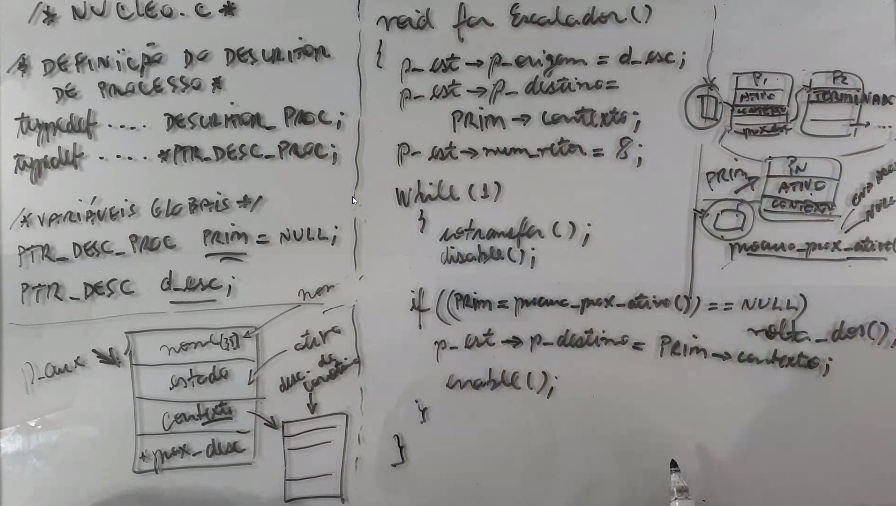 /* NUCLEO.C *
/* DEFINIÇÃO DO DESCRITOR
DE PROCESSO *
typedef .... DESCRITOR_PROC;
typedef .... *PTR_DESC_PROC;
/*VARIÁVEIS GLOBAIS*/
PTR_DESC_PROC PRIM = NULL;
PTR_DESC d_esc;
p_aux
nome[35]
estado
contexto
*prox_desc
nom
ativo
desc-de
void far Escalador()
{ p_est→p_origem = d_esc;
p_est→p_destino=
PRIM→contexto;
p_est→num_vetor = 8;
While(1)
{ iotransfer();
disable();
if ((PRIM=procura_prox_ativo()) == NULL)
volta_dos();
p_est→p_destino = PRIM→contexto;
enable();
}
}
P1
ATIVO
CONTEXTO
P2
TERMINADO
PRIM
PN
ATIVO
CONTEXTO
NULL
procura_prox_ativo(